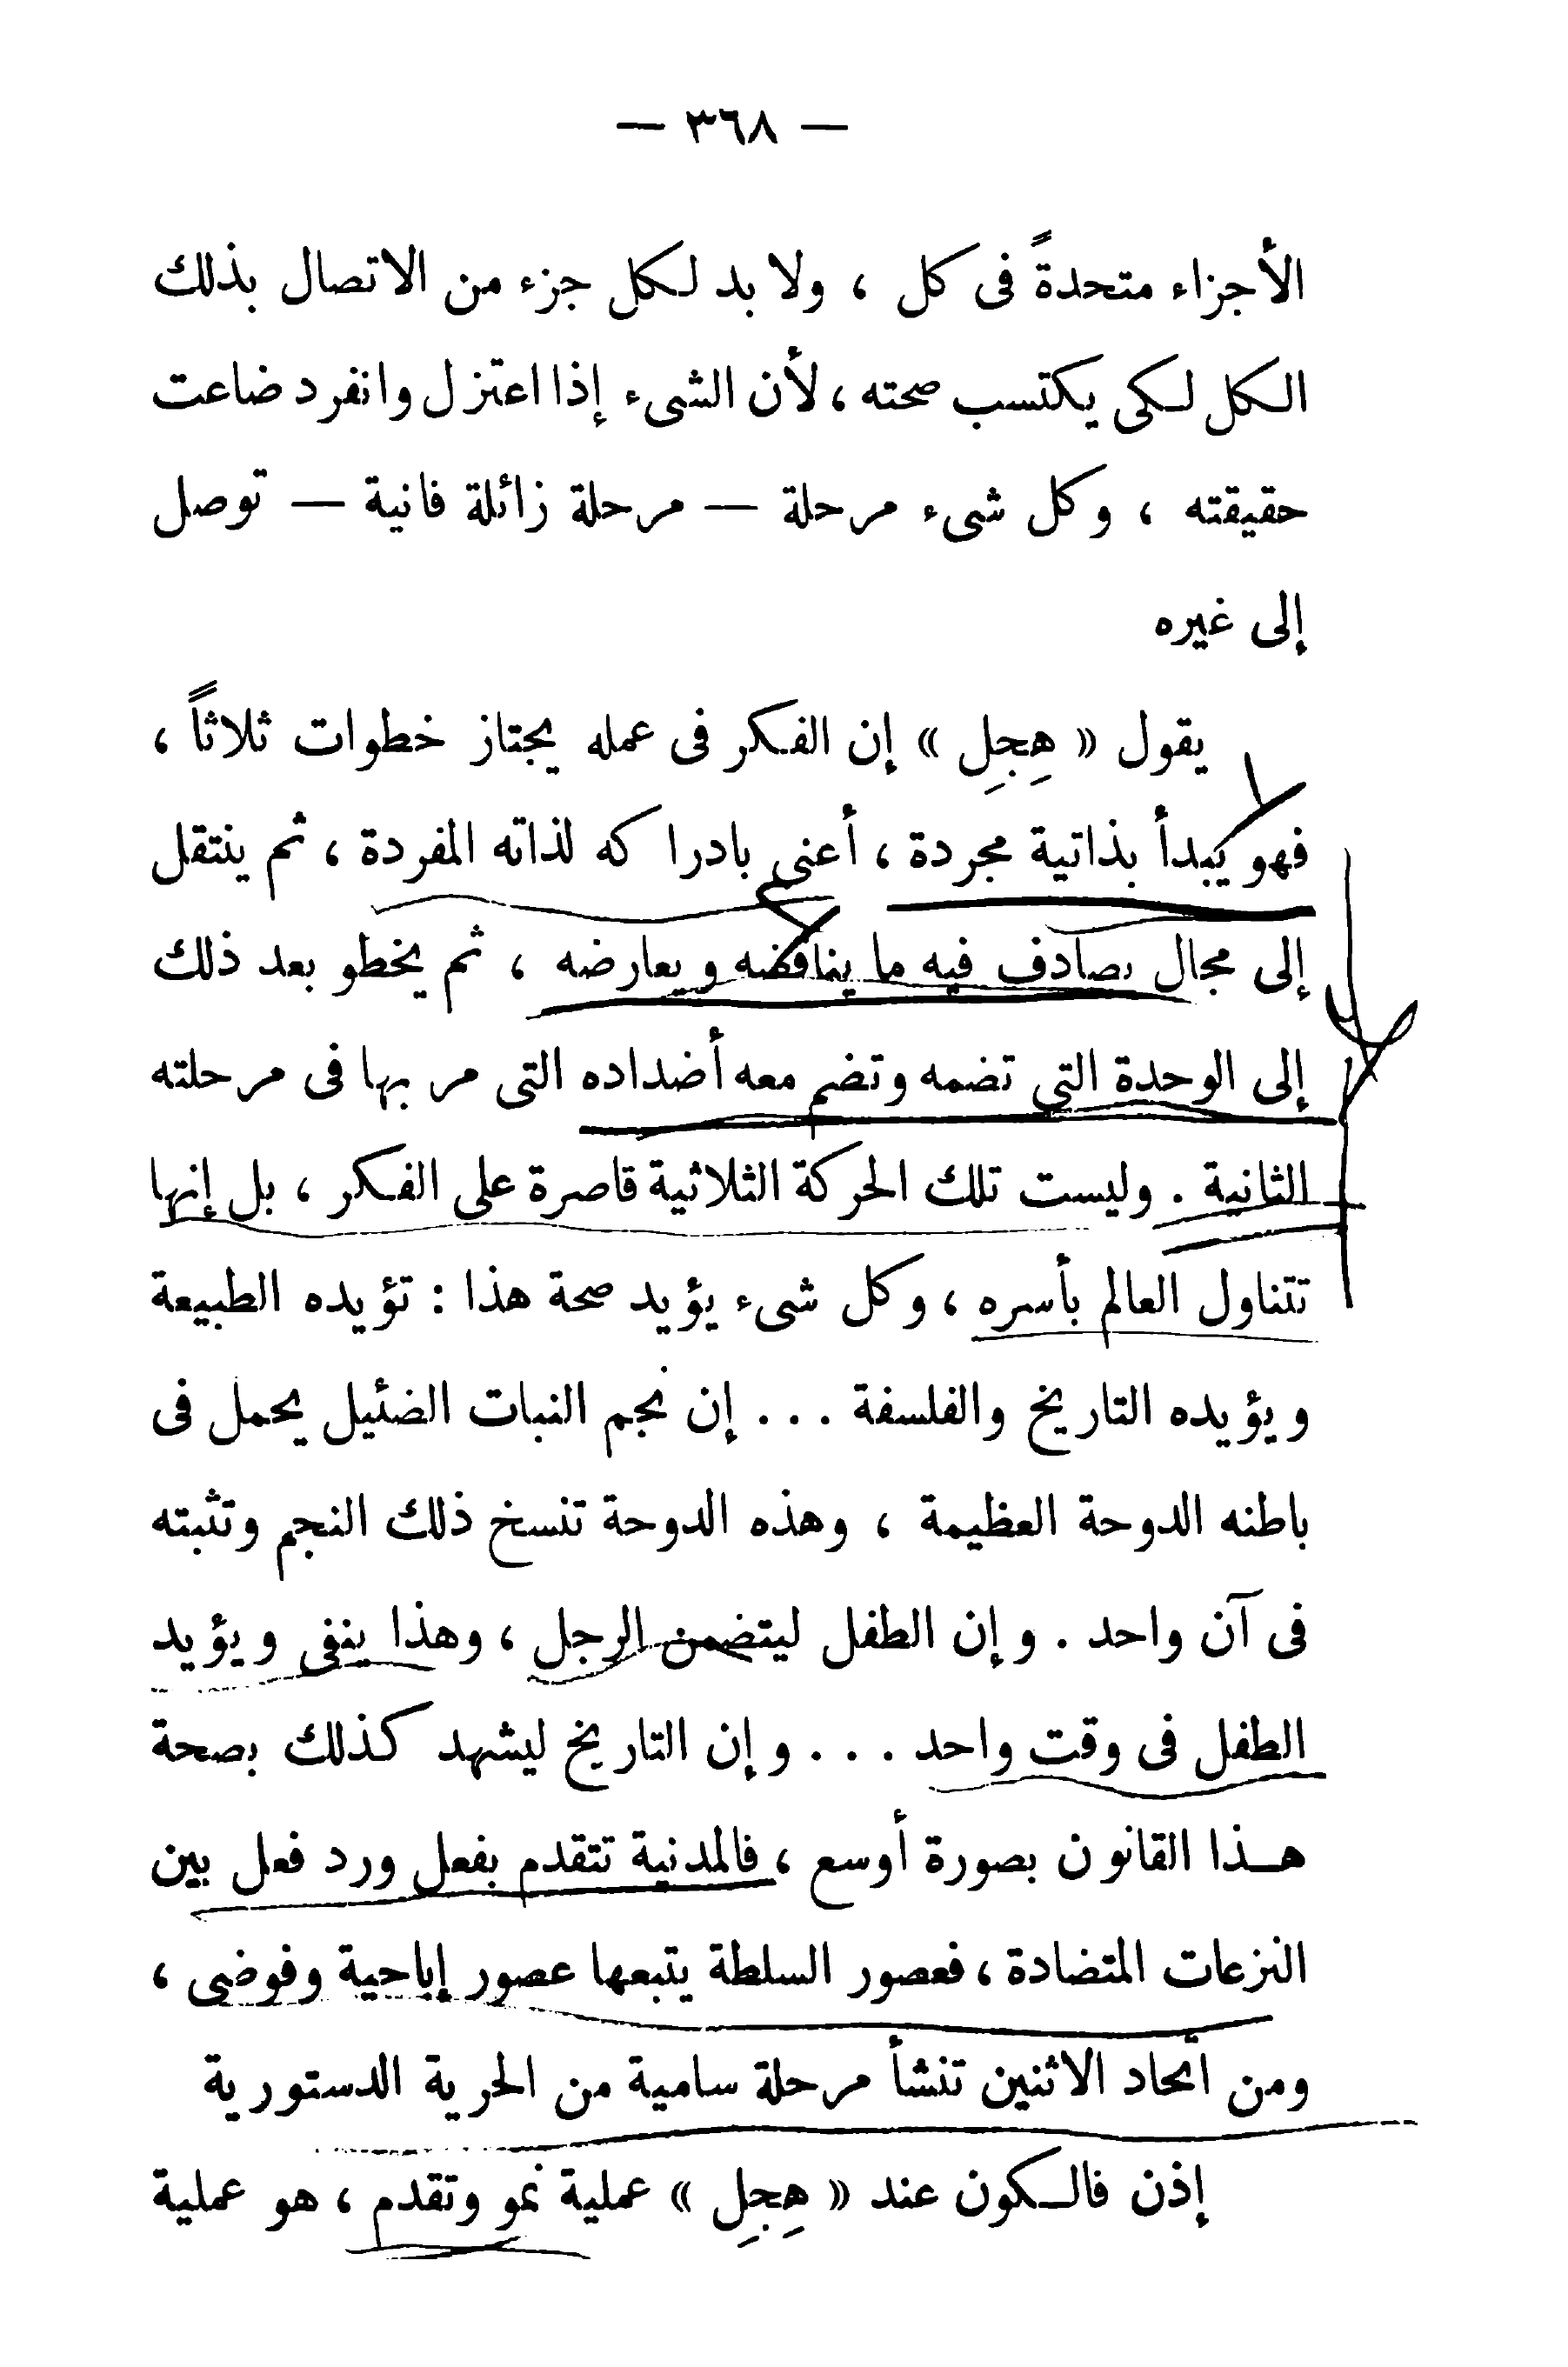 — ٣٦٨ —
الأجزاء متحدةً فى كل ، ولا بد لكل جزء من الاتصال بذلك
الكل لكى يكتسب صحته ، لأن الشىء إذا اعتزل وانفرد ضاعت
حقيقته ، وكل شىء مرحلة — مرحلة زائلة فانية — توصل
إلى غيره
يقول « هِجِل » إن الفكر فى عمله يجتاز خطوات ثلاثاً ،
فهو يبدأ بذاتية مجردة ، أعنى بادراكه لذاته المفردة ، ثم ينتقل
إلى مجال يصادف فيه ما يناقضه ويعارضه ، ثم يخطو بعد ذلك
إلى الوحدة التى تضمه وتضم معه أضداده التى مر بها فى مرحلته
الثانية . وليست تلك الحركة الثلاثية قاصرة على الفكر ، بل إنها
تتناول العالم بأسره ، وكل شىء يؤيد صحة هذا : تؤيده الطبيعة
ويؤيده التاريخ والفلسفة . . . إن نجم النبات الضئيل يحمل فى
باطنه الدوحة العظيمة ، وهذه الدوحة تنسخ ذلك النجم وتثبته
فى آن واحد . وإن الطفل ليتضمن الرجل ، وهذا ينفى ويؤيد
الطفل فى وقت واحد . . . وإن التاريخ ليشهد كذلك بصحة
هـذا القانون بصورة أوسع ، فالمدنية تتقدم بفعل ورد فعل بين
النزعات المتضادة ، فعصور السلطة يتبعها عصور إباحية وفوضى ،
ومن اتحاد الاثنين تنشأ مرحلة سامية من الحرية الدستورية
إذن فالكون عند « هِجِل » عملية نمو وتقدم ، هو عملية